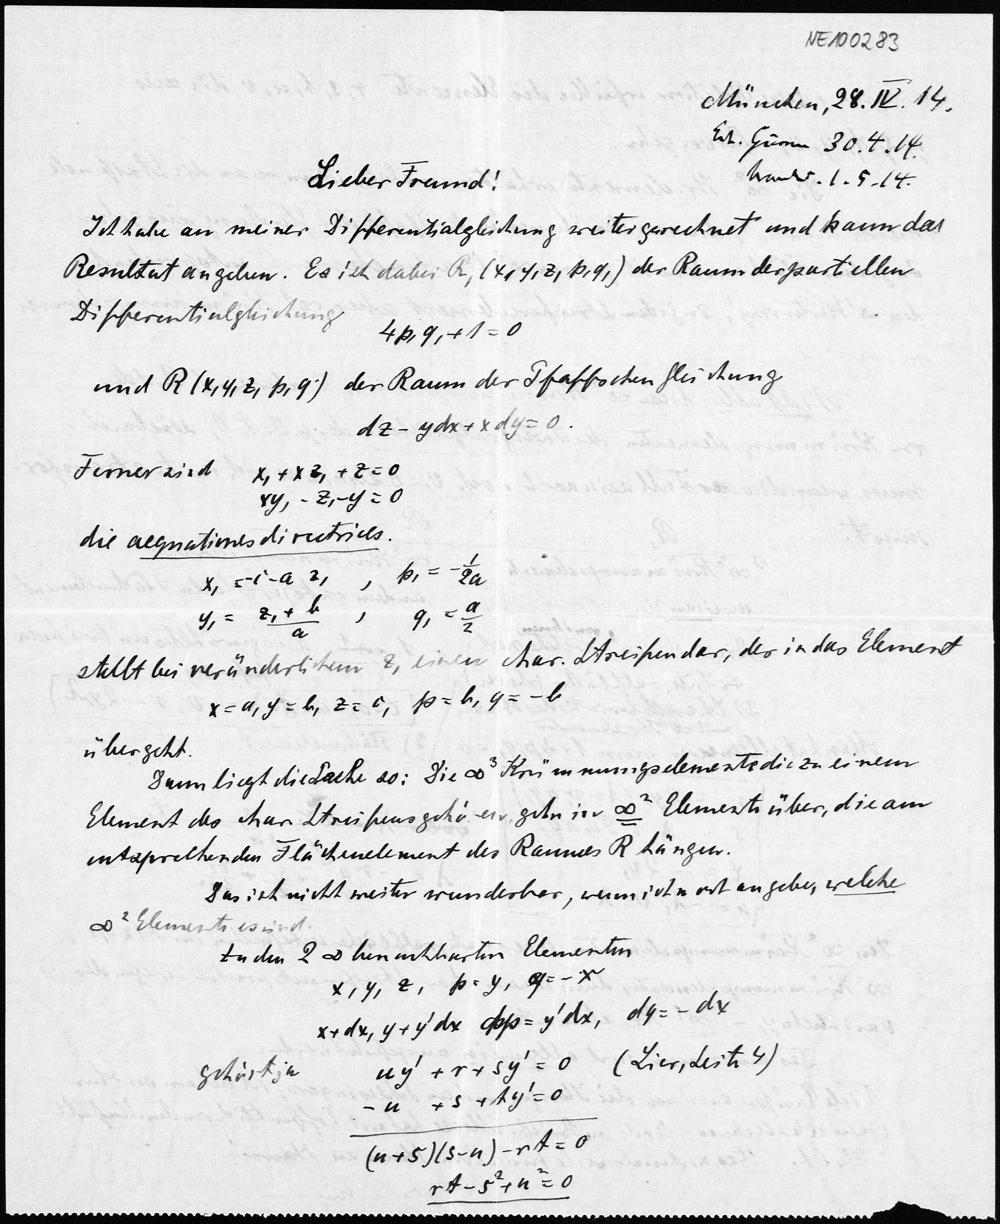 NE100283
München, 28. IV. 14.
30.4.14.
1.5.14.
Lieber Freund!
Ich habe an meiner Differentialgleichung weitergerechnet und kann das
Resultat angeben. Es ist dabei R₁ (x₁ y₁ z₁ p₁ q₁) der Raum der partiellen
Differentialgleichung
4p₁q₁ + 1 = 0
und R (x, y, z, p, q) der Raum der Pfaffschen Gleichung
dz - ydx + xdy = 0.
Ferner sind x₁ + xz₁ + z = 0
xy₁ - z₁ - y = 0
die aequationes directrices.
x₁ = -c - a z₁ , p₁ = -1/2a
y₁ = (z₁ + b)/a , q₁ = a/2
stellt bei veränderlichem z₁ einen char. Streifen dar, der in das Element
x = a, y = b, z = c, p = b, q = -a
übergeht.
Dann liegt die Sache so: Die ∞³ Krümmungselemente die zu einem
Element des char. Streifens gehören, gehn in ∞² Elemente über, die am
entsprechenden Flächenelement des Raumes R hängen.
Das ist nicht weiter wunderbar, wenn ich nicht angebe, welche
∞² Elemente es sind.
Zu den 2 ∞ benachbarten Elementen
x, y, z, p = y, q = -x
x+dx, y+y'dx dp = y'dx, dq = -dx
gehört ja uy' + r + sy' = 0 (Lier, Seite 4)
-u + s + ty' = 0
(u+s)(s-u) - rt = 0
rt - s² + u² = 0